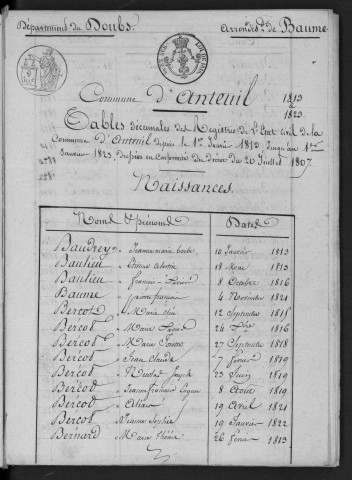 Département du Doubs. Arrondist. de Baume
Commune d'Anteuil 1813
à
1823.
Tables décennales des Registres de l'Etat civil de la
Commune d'Anteuil depuis le 1er Janvier 1813, jusqu'au 1er
Janvier 1823, dressées en conformité du décret du 20 Juillet 1807.
Naissances.
Noms & prénoms Dates
Baudrey Jeanne marie 10 Janvier 1813
Baulieu 18 Mai 1813
Baulieu 8 Octobre 1816
Baume pierre françois 4 Novembre 1821
Bercot Marie 12 Septembre 1815
Bercot Marie 24 1816
Bercot Marie 27 Septembre 1818
Bercot Jean Claude 7 février 1819
Bercot Nicolas Joseph 23 Juin 1819
Bercot Jean françois 8 Aout 1819
Bercot 19 Avril 1821
Bercot Jeanne Sophie 19 Janvier 1822
Bernard Marie 26 1813